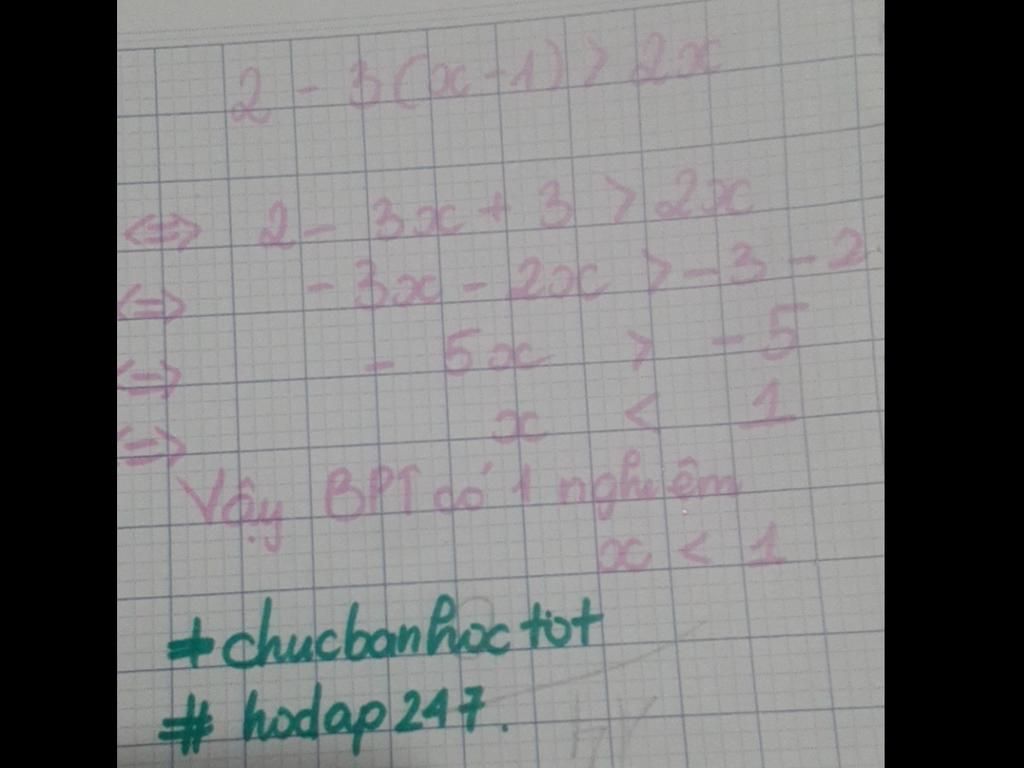 2 - 3(x-1) > 2x
<=> 2 - 3x + 3 > 2x
<=> - 3x - 2x > - 3 - 2
<=> - 5x > - 5
<=> x < 1
Vậy BPT có 1 nghiệm
x < 1
+ chucbanhoc tot
# hodap 247.